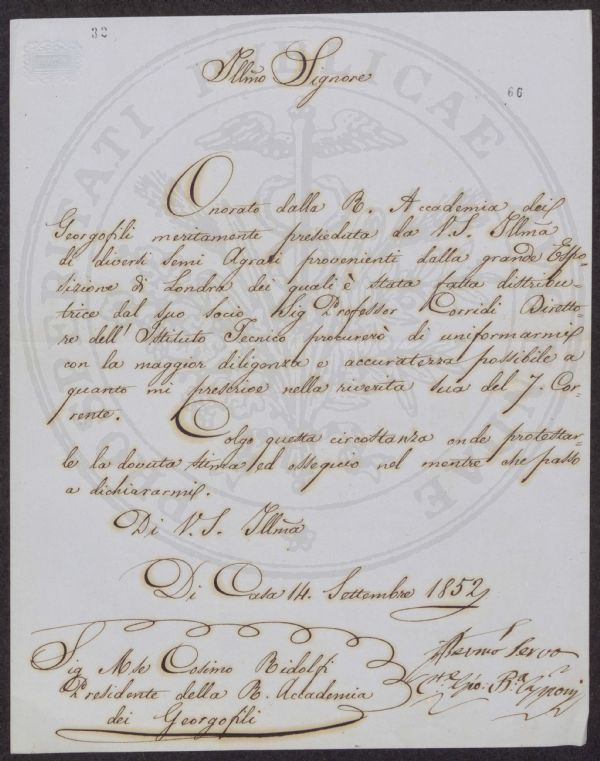 32
66
Illmo Signore
Onorato dalla R. Accademia dei
Georgofili meritamente presieduta da V. S. Illma
di diversi Semi Agrari provenienti dalla grande Espo-
sizione di Londra dei quali è stata fatta distribu-
trice dal suo socio Sig Professor Corridi Diretto-
re dell' Istituto Tecnico procurerò di uniformarmi
con la maggior diligenza e accuratezza possibile a
quanto mi prescrive nella riverita sua del 7. Cor-
rente. Colgo questa circostanza onde protestar-
le la dovuta stima ed ossequio nel mentre che passo
a dichiararmi.
Di V. S. Illma
Di Casa 14. Settembre 1852
Sig Mse Cosimo Ridolfi
Presidente della R. Accademia
dei Georgofili
Servo
PROSPERITATI PUBLICAE